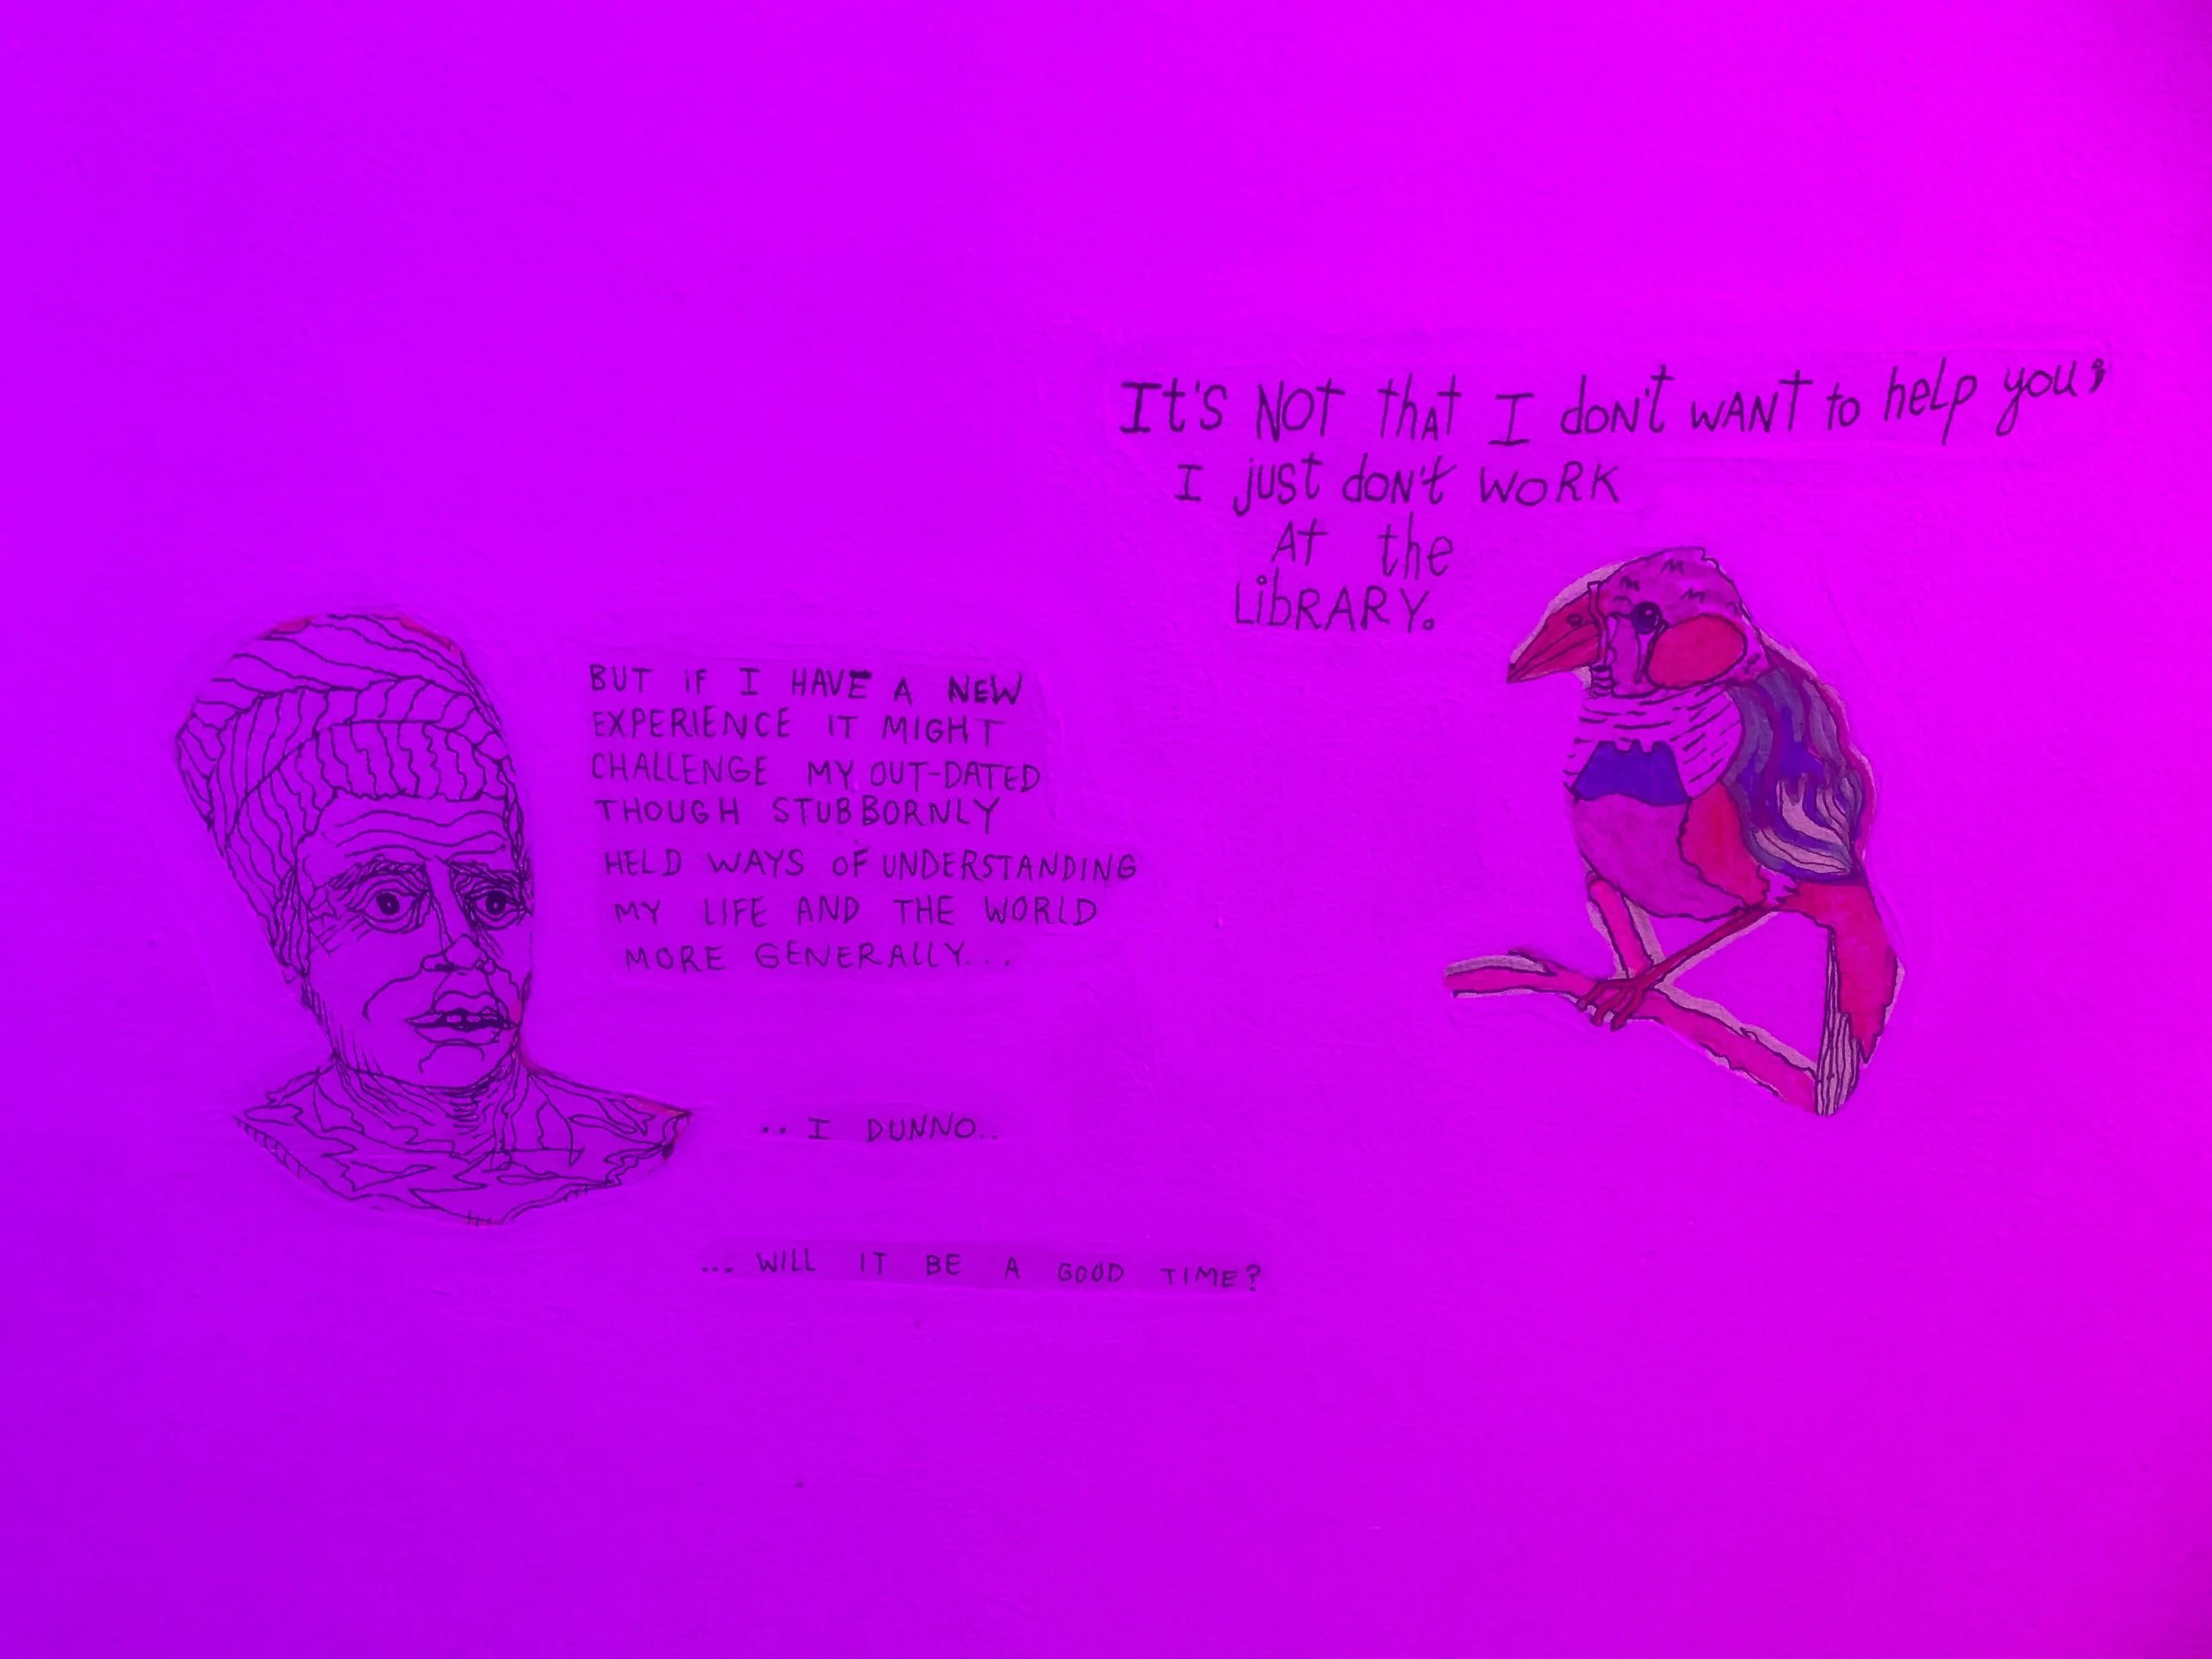 It's NOT thAt I doN't WANT to help you;
I just doN't WORK
At the
LibRARY.
BUT iF I HAVE A NEW
EXPERIENCE IT MIGHT
CHALLENGE MY OUT-DATED
THOUGH STUBBORNLY
HELD WAYS OF UNDERSTANDING
MY LIFE AND THE WORLD
MORE GENERALLY...
.. I DUNNO..
... WILL IT BE A GOOD TIME?